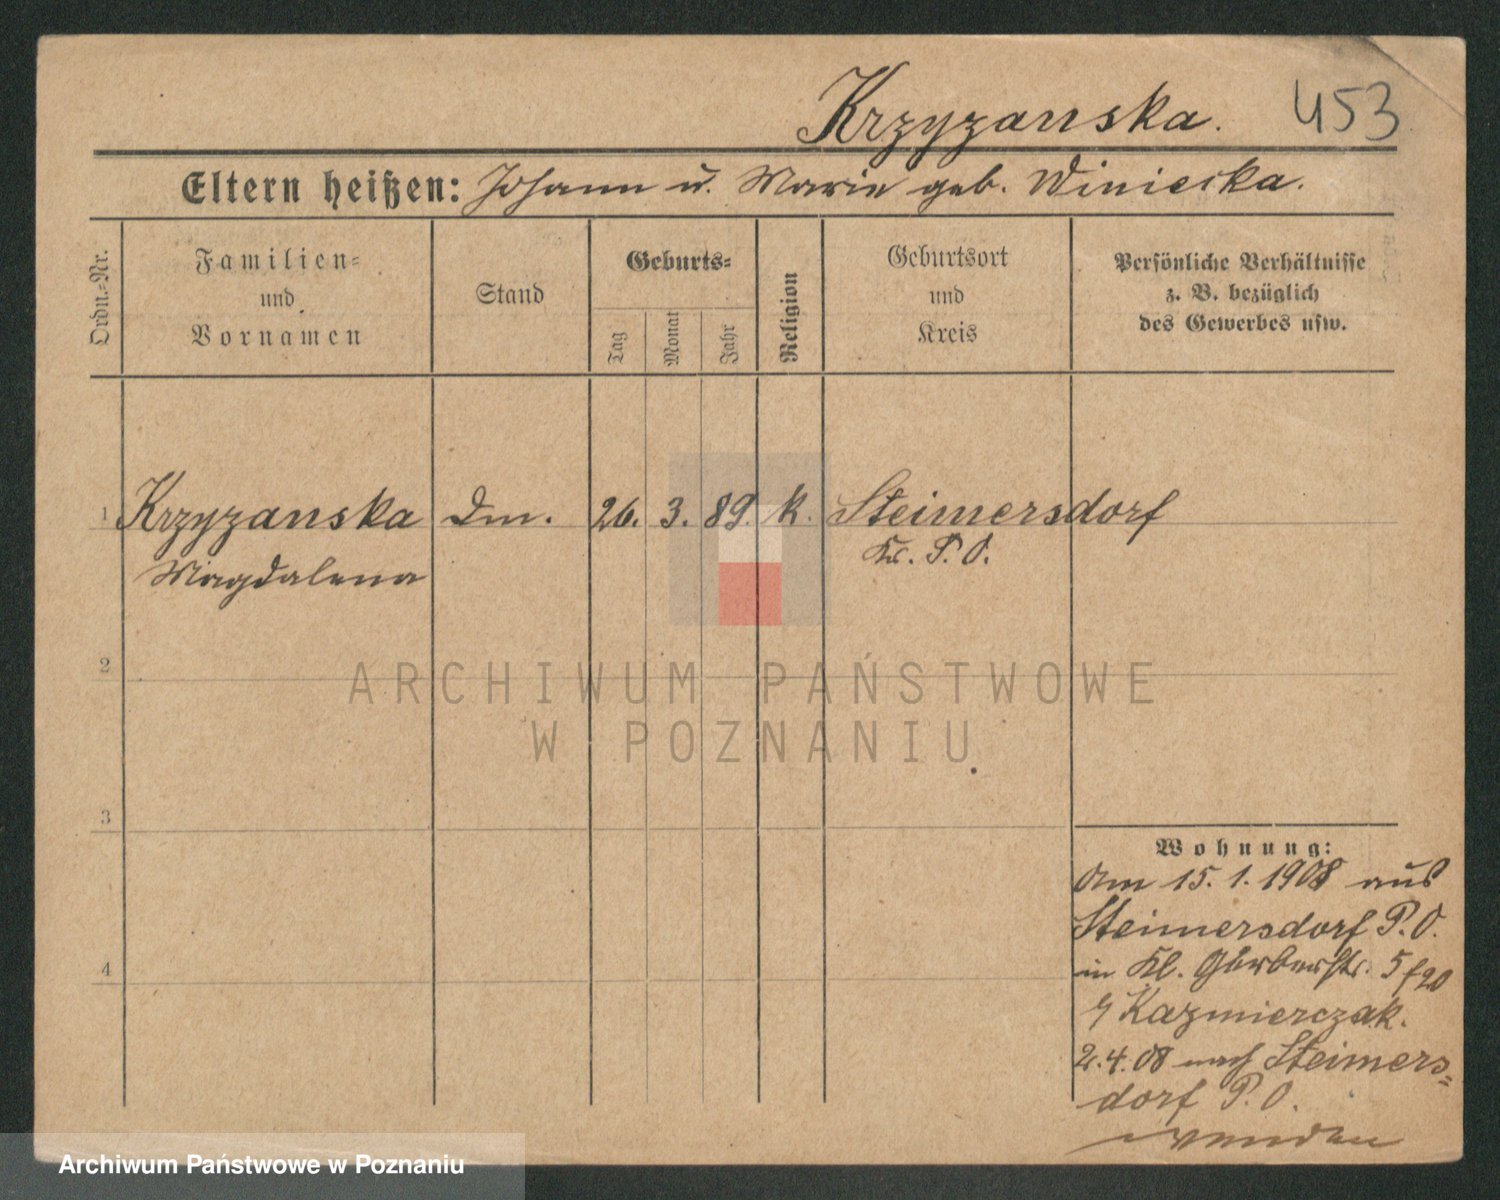 Krzyzanska. 453
Eltern heißen: Johann u. Marie geb. Winiecka.
Ordn.-Nr.
Familien-
und
Vornamen
Stand
Geburts-
Tag
Monat
Jahr
Religion
Geburtsort
und
Kreis
Persönliche Verhältnisse
z. B. bezüglich
des Gewerbes usw.
1 Krzyzanska Dm. 26. 3. 89. k. Steimersdorf
Magdalena Kr. P. O.
2
3
4
Wohnung:
Am 15. 1. 1908 aus
Steimersdorf P. O.
in Kl. Gerberstr. 5
Kazmierczak.
2. 4. 08 nach Steimers-
dorf P. O.
wenden
ARCHIWUM PAŃSTWOWE
W POZNANIU
Archiwum Państwowe w Poznaniu